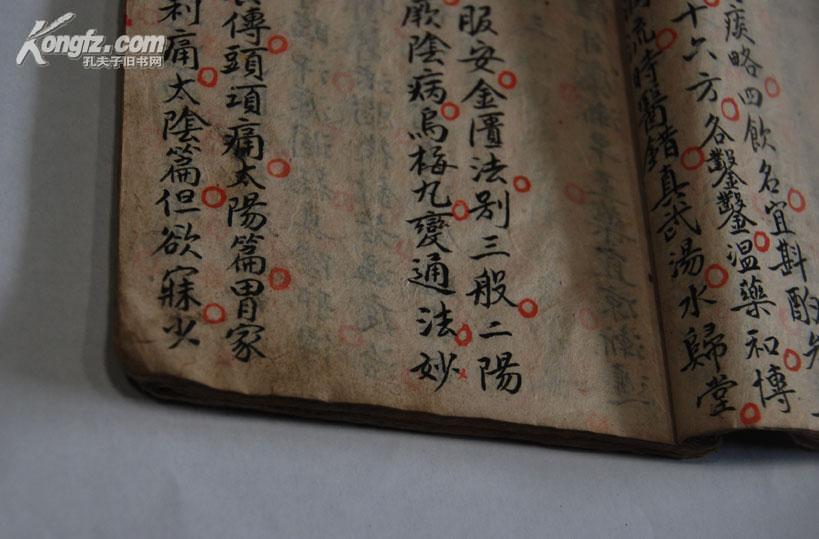 Kongfz.com
孔夫子旧书网
痰略四飲名宜斟酌
十六方各鑿鑿溫藥和博
流時醫錯真武湯水歸堂
服安金匱法別三般二陽
厥陰病烏梅九變通法妙
傳頭項痛太陽篇胃家
痛太陰篇但欲寐少